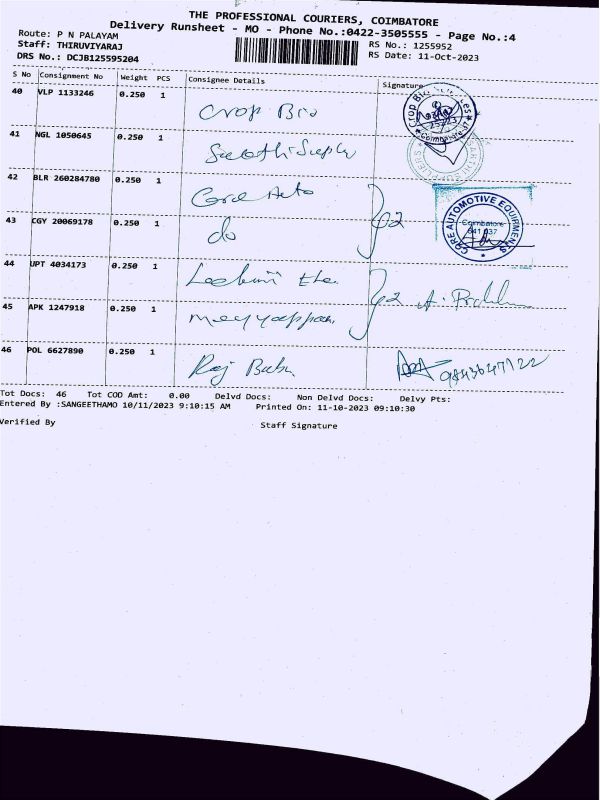 THE PROFESSIONAL COURIERS, COIMBATORE
Delivery Runsheet - MO - Phone No.:0422-3505555 - Page No.:4
Route: P N PALAYAM
Staff: THIRUVIYARAJ RS No.: 1255952
DRS No.: DCJB125595204 RS Date: 11-Oct-2023
S No Consignment No Weight PCS Consignee Details Signature
40 VLP 1133246 0.250 1 Crop Bio
41 NGL 1050645 0.250 1
42 BLR 260284780 0.250 1 Core Auto
CORE AUTOMOTIVE EQUIPMENTS
Coimbatore
641 037
43 CGY 20069178 0.250 1 do
44 UPT 4034173 0.250 1
45 APK 1247918 0.250 1 Meyyappan
46 POL 6627890 0.250 1 Raj Babu 9843647122
Tot Docs: 46 Tot COD Amt: 0.00 Delvd Docs: Non Delvd Docs: Delvy Pts:
Entered By :SANGEETHAMO 10/11/2023 9:10:15 AM Printed On: 11-10-2023 09:10:30
Verified By Staff Signature